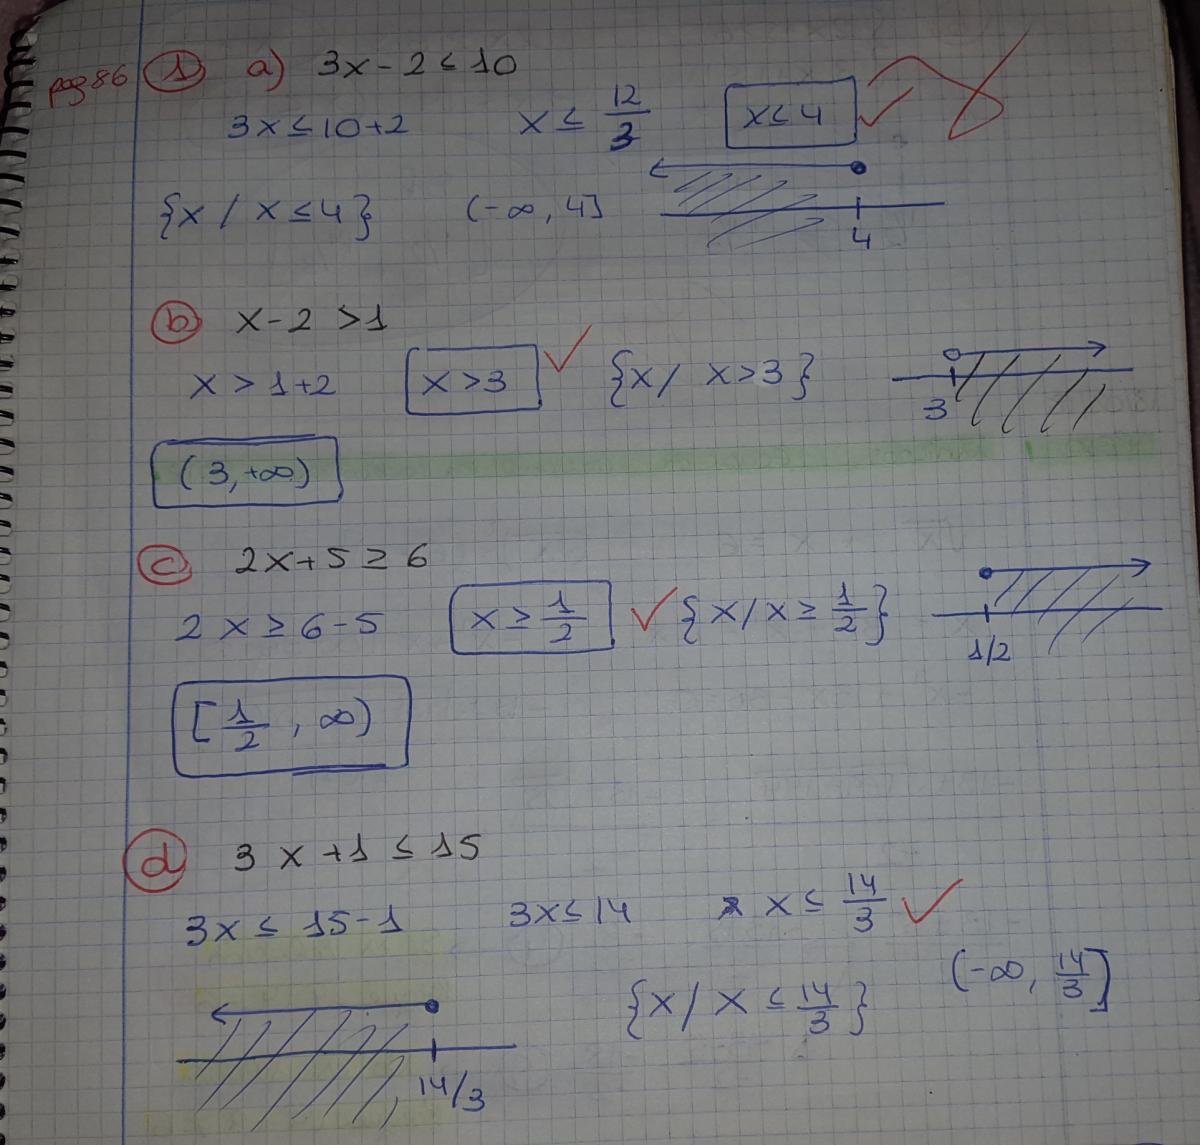 pag 86 1 a) 3x - 2 ≤ 10
3x ≤ 10+2 x ≤ 12/3 x ≤ 4
{x / x ≤ 4} (-∞, 4] 4
b x - 2 > 1
x > 1+2 x > 3 {x / x > 3} 3
(3, +∞)
c 2x + 5 ≥ 6
2x ≥ 6 - 5 x ≥ 1/2 {x / x ≥ 1/2} 1/2
[1/2, ∞)
d 3x + 1 ≤ 15
3x ≤ 15 - 1 3x ≤ 14 x ≤ 14/3
{x / x ≤ 14/3} (-∞, 14/3]
14/3